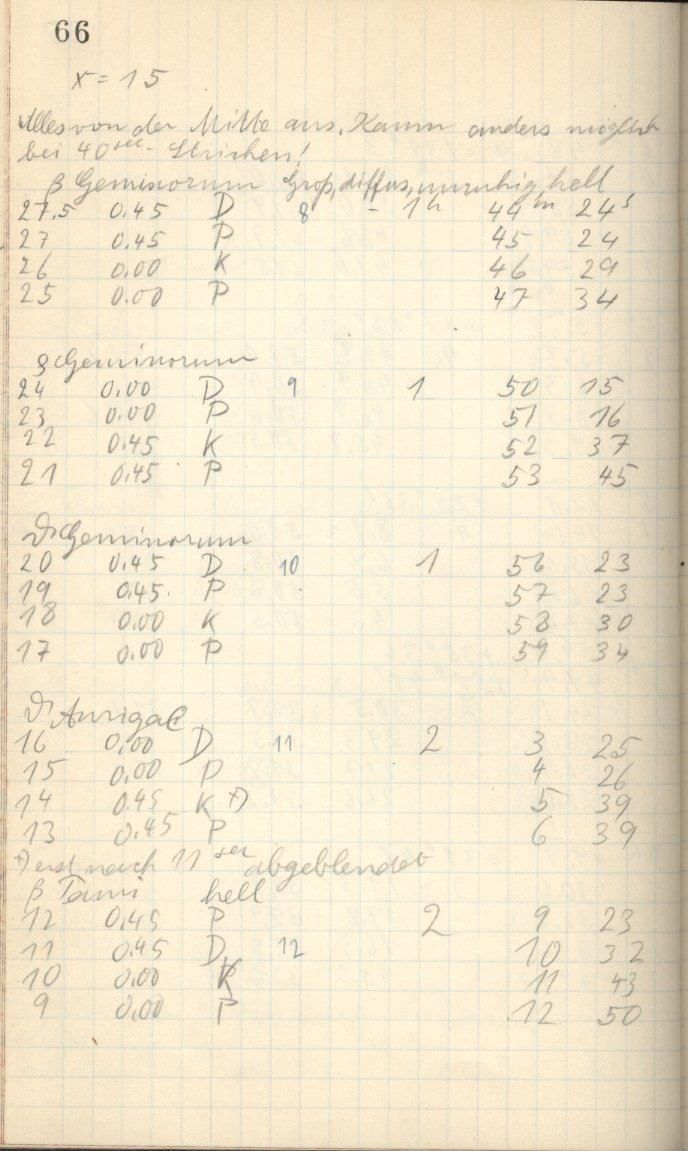 66
x = 15
Alles von der Mitte aus. Kaum anders möglich
bei 40 sec. Strichen!
β Geminorum Groß, diffus, unruhig hell
27.5 0.45 D 8 - 1h 44m 24s
27 0.45 P 45 24
26 0.00 K 46 29
25 0.00 P 47 34
Geminorum
24 0.00 D 9 1 50 15
23 0.00 P 51 16
22 0.45 K 52 37
21 0.45 P 53 45
ϑ Geminorum
20 0.45 D 10 1 56 23
19 0.45 P 57 23
18 0.00 K 58 30
17 0.00 P 59 34
ϑ Aurigae
16 0.00 D 11 2 3 25
15 0.00 P 4 26
14 0.45 K +) 5 39
13 0.45 P 6 39
+) erst nach 11 sec abgeblendet
β Tauri hell
12 0.45 P 2 9 23
11 0.45 D 12 10 32
10 0.00 K 11 43
9 0.00 P 12 50